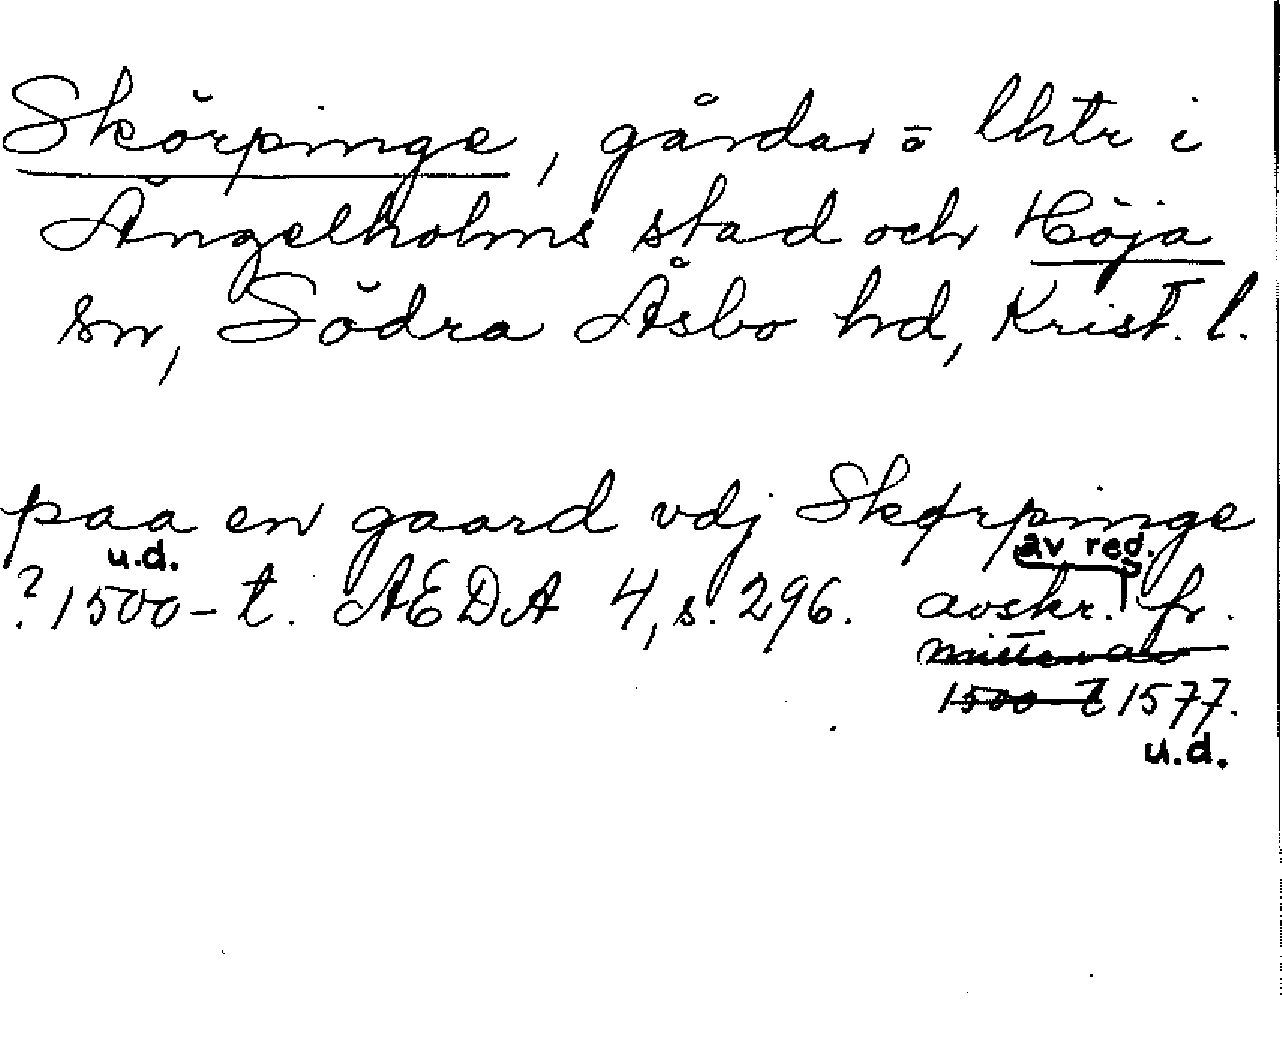 Skörpinge, gårdar o lhtr i
Ängelholms stad och Höja
sn, Södra Åsbo hd, Krist. l.
paa en gaard vdj Skørpinge
u.d. av red.
? 1500-t. AEDA 4, s. 296. avskr. fr.
mitten av
1500-t 1577.
u.d.